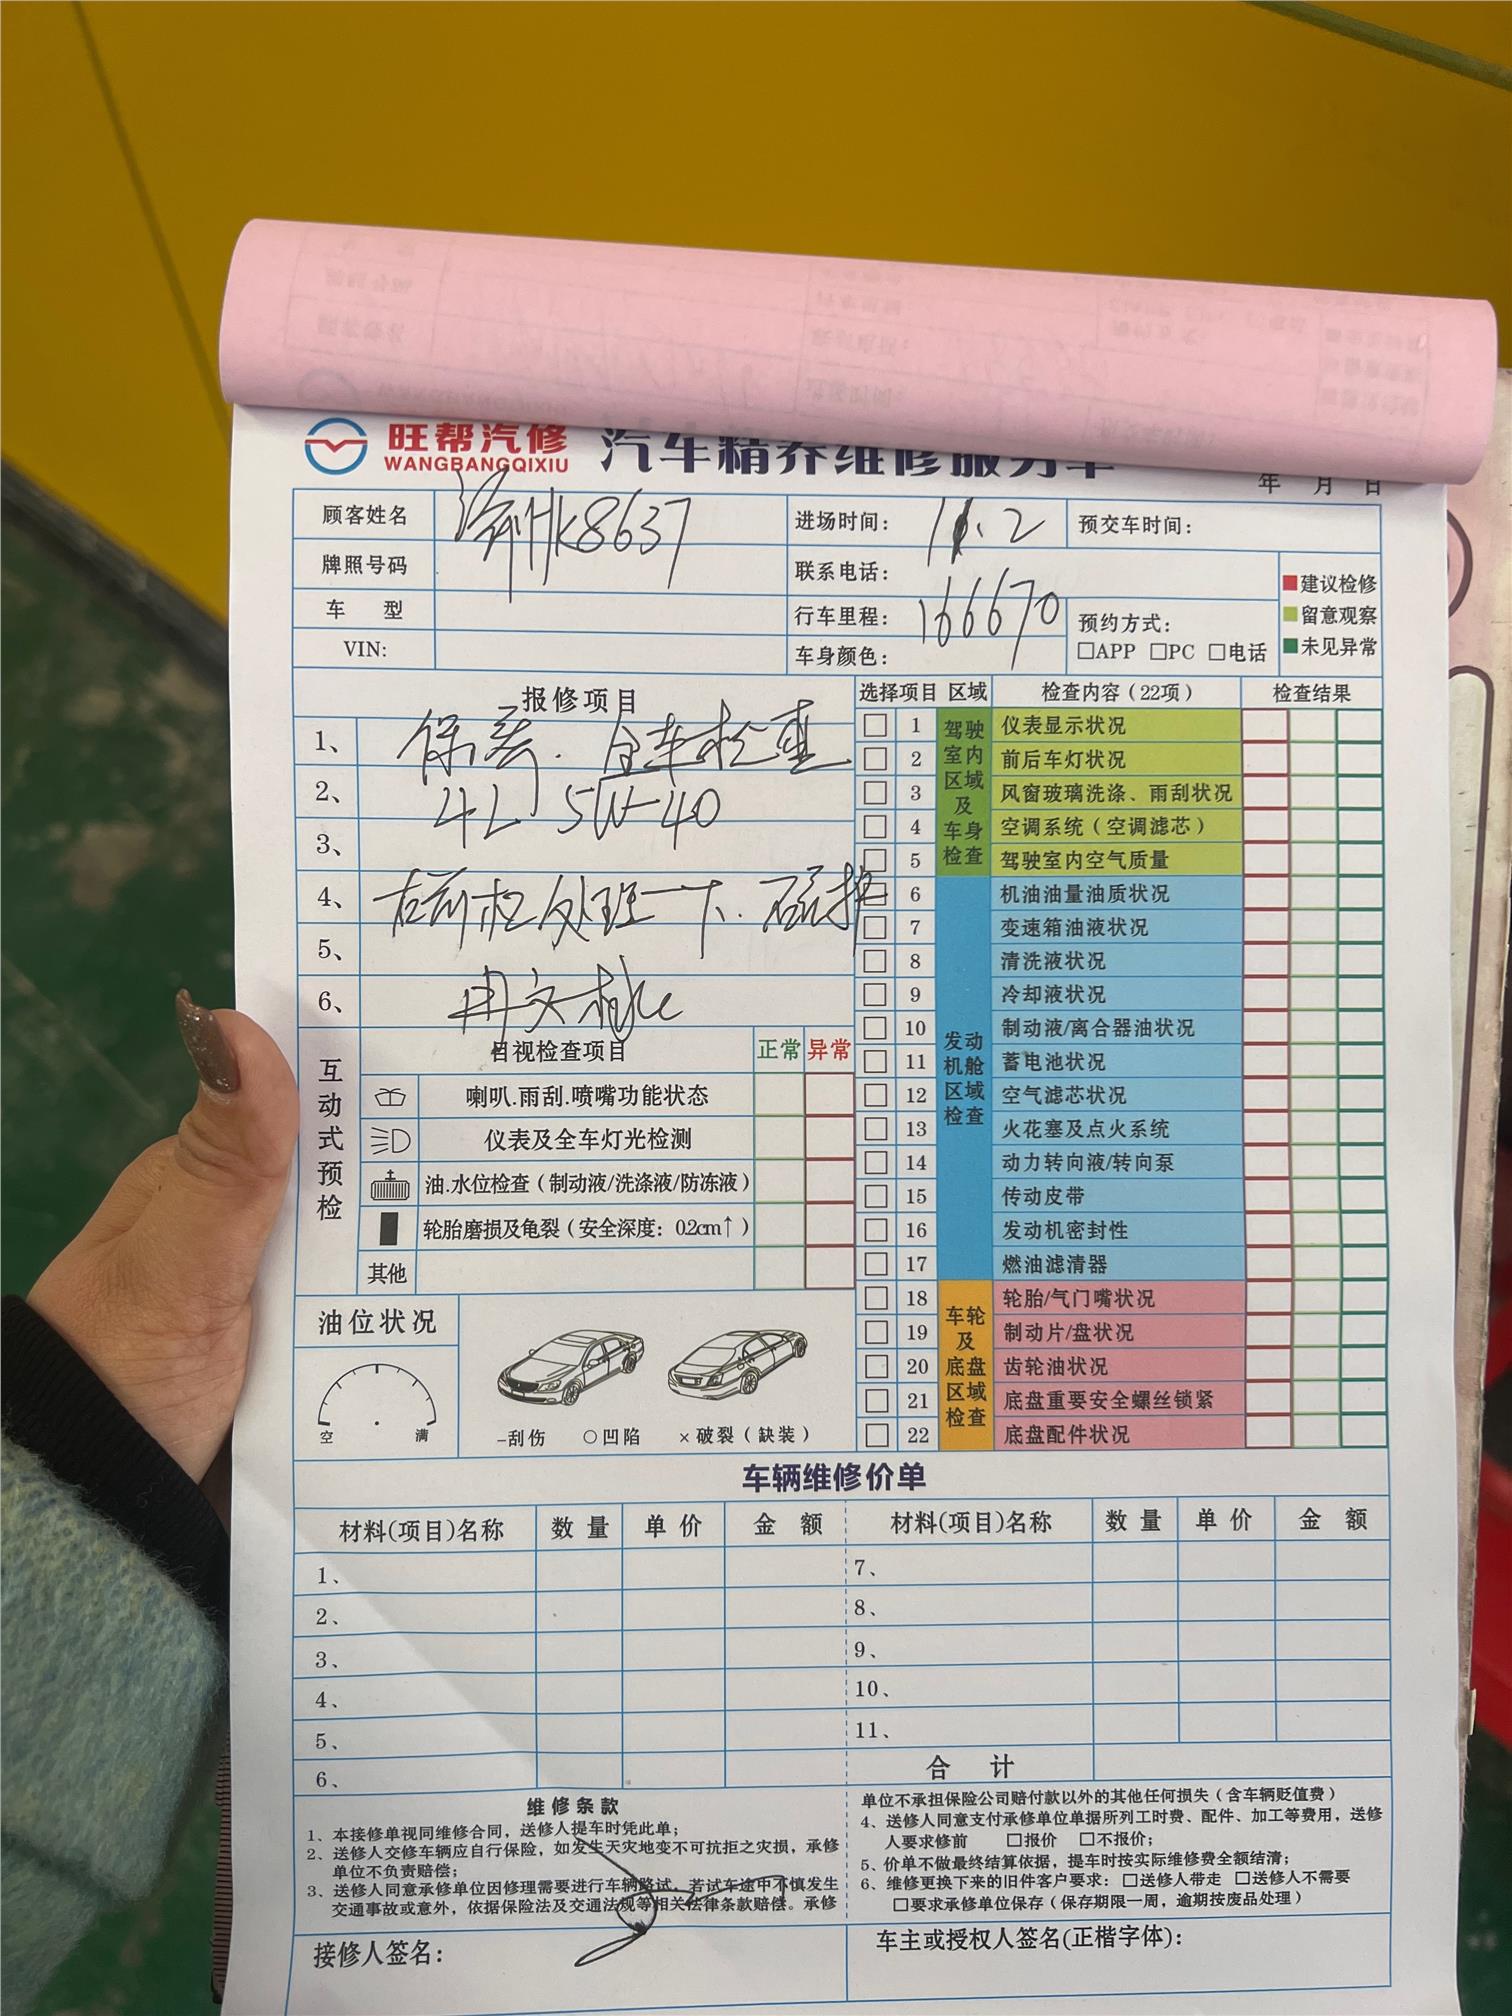 旺帮汽修
WANGBANGQIXIU
汽车精养维修服务单
年 月 日
顾客姓名
K8637
进场时间: 11.2
预交车时间:
牌照号码
联系电话:
车 型
行车里程: 166670
预约方式:
□APP □PC □电话
VIN:
车身颜色:
建议检修
留意观察
未见异常
报修项目
1、保养. 全车检查
2、4L 5W-40
3、
4、右前杠处理一下.
5、
6、
选择项目 区域 检查内容(22项) 检查结果
驾驶室内区域及车身检查
1 仪表显示状况
2 前后车灯状况
3 风窗玻璃洗涤、雨刮状况
4 空调系统(空调滤芯)
5 驾驶室内空气质量
发动机舱区域检查
6 机油油量油质状况
7 变速箱油液状况
8 清洗液状况
9 冷却液状况
10 制动液/离合器油状况
11 蓄电池状况
12 空气滤芯状况
13 火花塞及点火系统
14 动力转向液/转向泵
15 传动皮带
16 发动机密封性
17 燃油滤清器
车轮及底盘区域检查
18 轮胎/气门嘴状况
19 制动片/盘状况
20 齿轮油状况
21 底盘重要安全螺丝锁紧
22 底盘配件状况
互动式预检
目视检查项目 正常 异常
喇叭.雨刮.喷嘴功能状态
仪表及全车灯光检测
油.水位检查(制动液/洗涤液/防冻液)
轮胎磨损及龟裂(安全深度: 0.2cm↑)
其他
油位状况
空 满
–刮伤 ○凹陷 ×破裂(缺装)
车辆维修价单
材料(项目)名称 数量 单价 金额 材料(项目)名称 数量 单价 金额
1、 7、
2、 8、
3、 9、
4、 10、
5、 11、
6、 合 计
维修条款
1、本接修单视同维修合同，送修人提车时凭此单；
2、送修人交修车辆应自行保险，如发生天灾地变不可抗拒之灾损，承修
单位不负责赔偿；
3、送修人同意承修单位因修理需要进行车辆路试，若试车途中不慎发生
交通事故或意外，依据保险法及交通法规等相关法律条款赔偿。承修
单位不承担保险公司赔付款以外的其他任何损失(含车辆贬值费)
4、送修人同意支付承修单位单据所列工时费、配件、加工等费用，送修
人要求修前 □报价 □不报价；
5、价单不做最终结算依据，提车时按实际维修费全额结清；
6、维修更换下来的旧件客户要求：□送修人带走 □送修人不需要
□要求承修单位保存(保存期限一周，逾期按废品处理)
接修人签名:
车主或授权人签名(正楷字体):